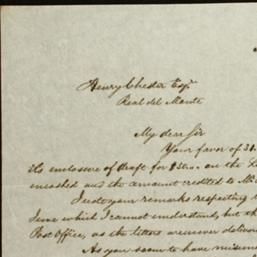 Henry Chester Esqr.
Real del Monte
My dear Sir
Your favor of 31
its enclosure of draft for $ on the
encashed and the amount credited to Mr
I note your remarks respecting
June which I cannot understand, but th
Post Office, as the letters are never deliv
As you seem to have misun